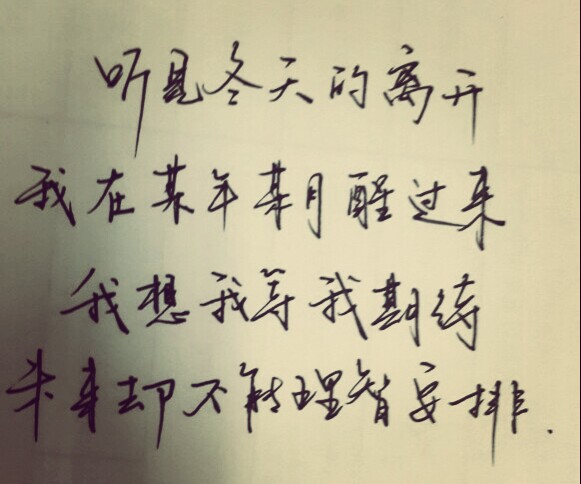 听见冬天的离开
我在某年某月醒过来
我想我等我期待
未来却不能理智安排.